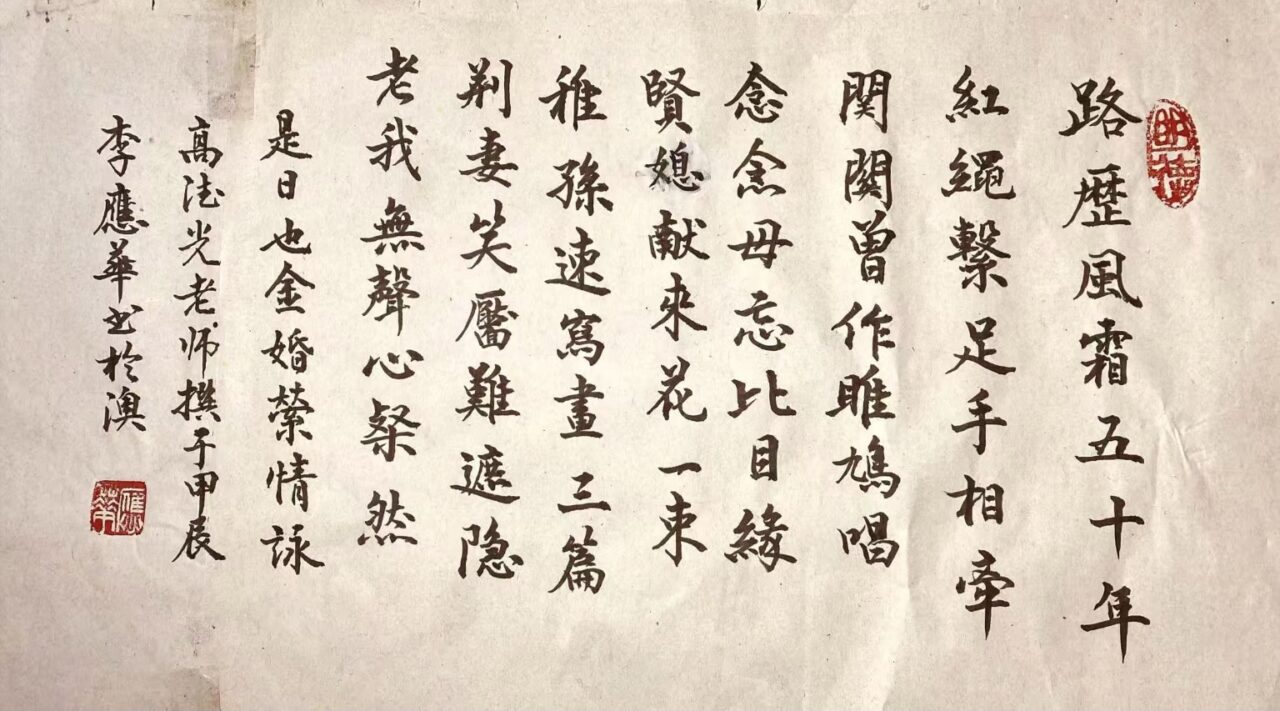 明德
路歷風霜五十年
紅繩繫足手相牽
関関曾作雎鳩唱
念念毋忘比目緣
賢媳献来花一束
稚孫速寫畫三篇
荆妻笑靨難遮隐
老我無聲心粲然
是日也金婚縈情詠
高法光老师撰于甲辰
李應華书於澳
應華